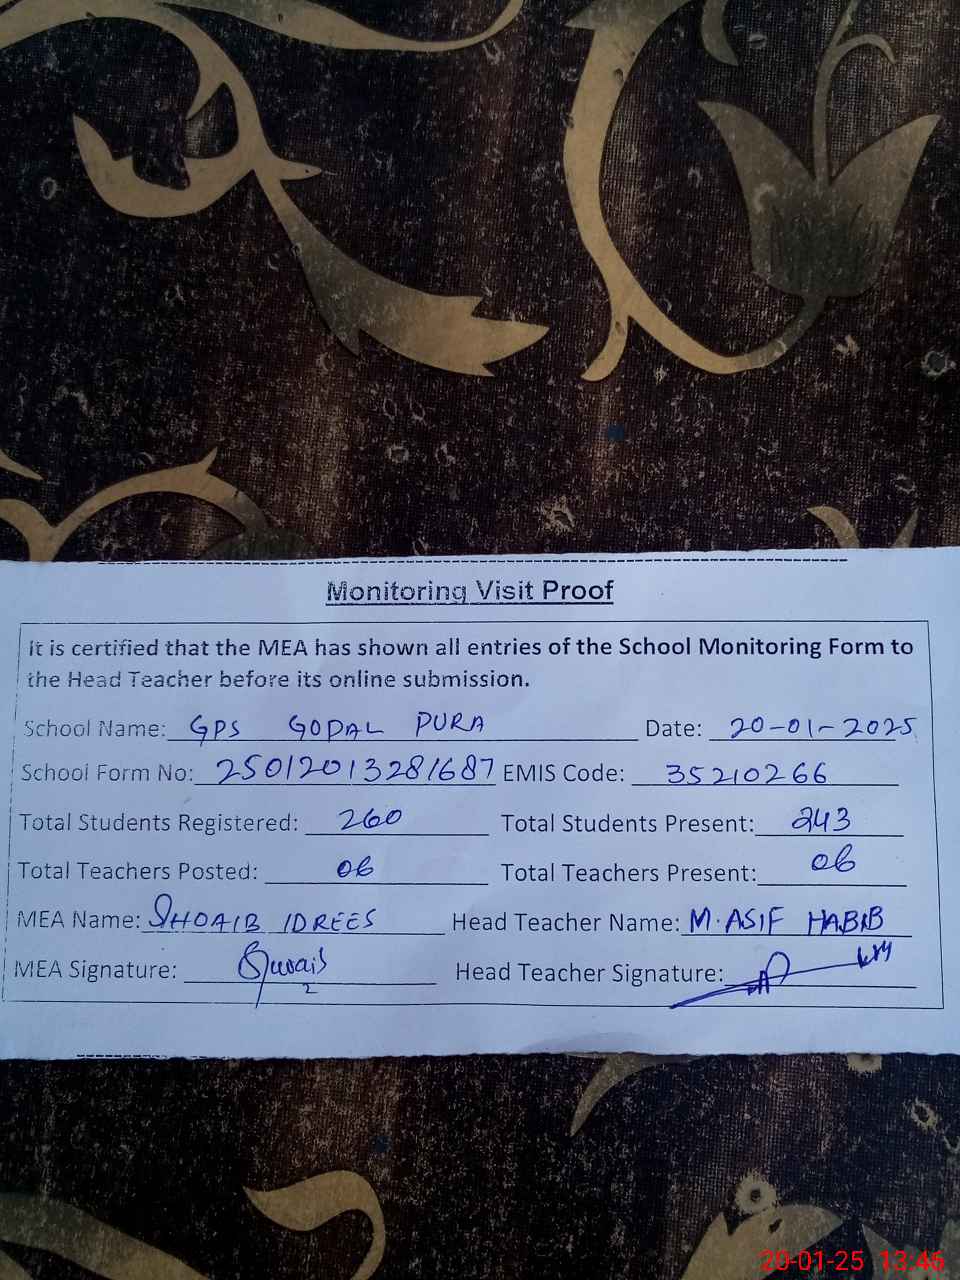 Monitoring Visit Proof
It is certified that the MEA has shown all entries of the School Monitoring Form to
the Head Teacher before its online submission.
School Name: GPS GOPAL PURA Date: 20-01-2025
School Form No: 25012013281687 EMIS Code: 35210266
Total Students Registered: 260 Total Students Present: 243
Total Teachers Posted: 06 Total Teachers Present: 06
MEA Name: SHOAIB IDREES Head Teacher Name: M. ASIF HABIB
MEA Signature: Head Teacher Signature:
20-01-25 13:46